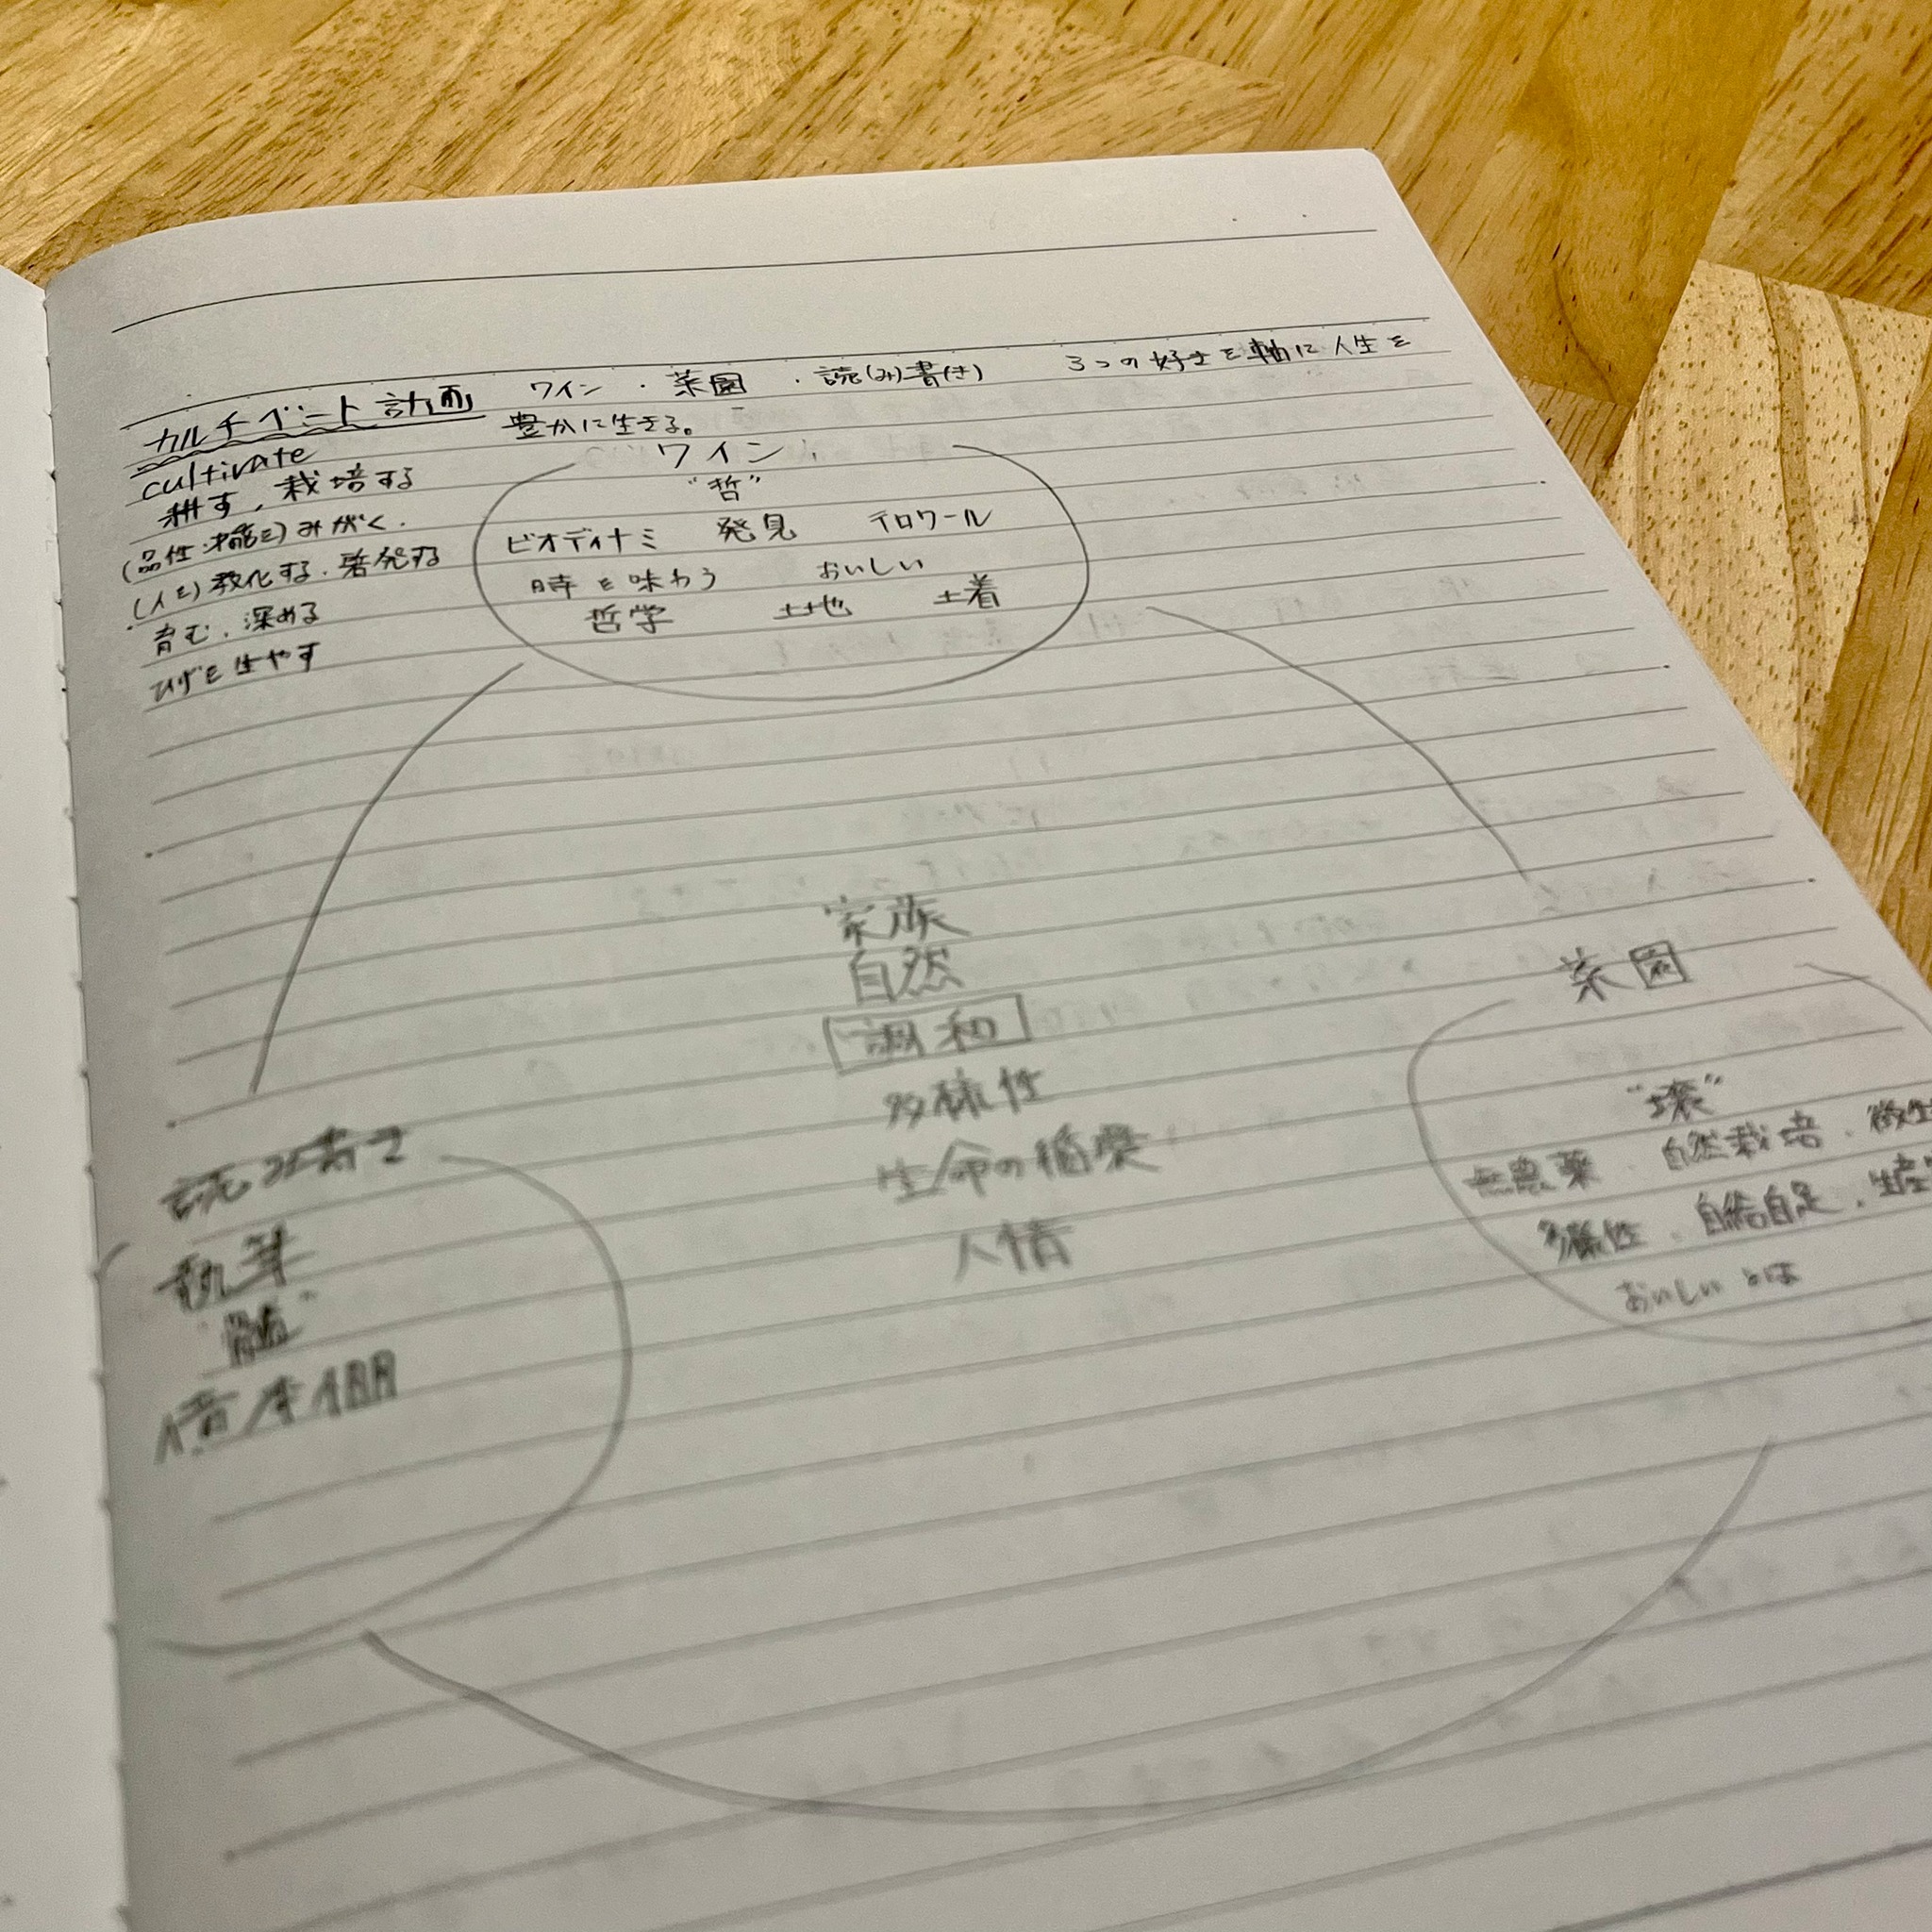 カルチベート計画 ワイン・菜園・読(み)書(き) 3つの好きを軸に人生を
豊かに生きる。
cultivate
耕す、栽培する
(品性・才能を)みがく.
(人を)教化する、啓発する
育む、深める
ひげを生やす
ワイン
"哲"
ビオディナミ 発見 テロワール
時を味わう おいしい
哲学 土地 土着
家族
自然
調和
多様性
生命の循環
人情
菜園
"壌"
無農薬・自然栽培・微生
多様性・自給自足・生産
おいしいとは
読み書き
執筆
"髄"
積本棚